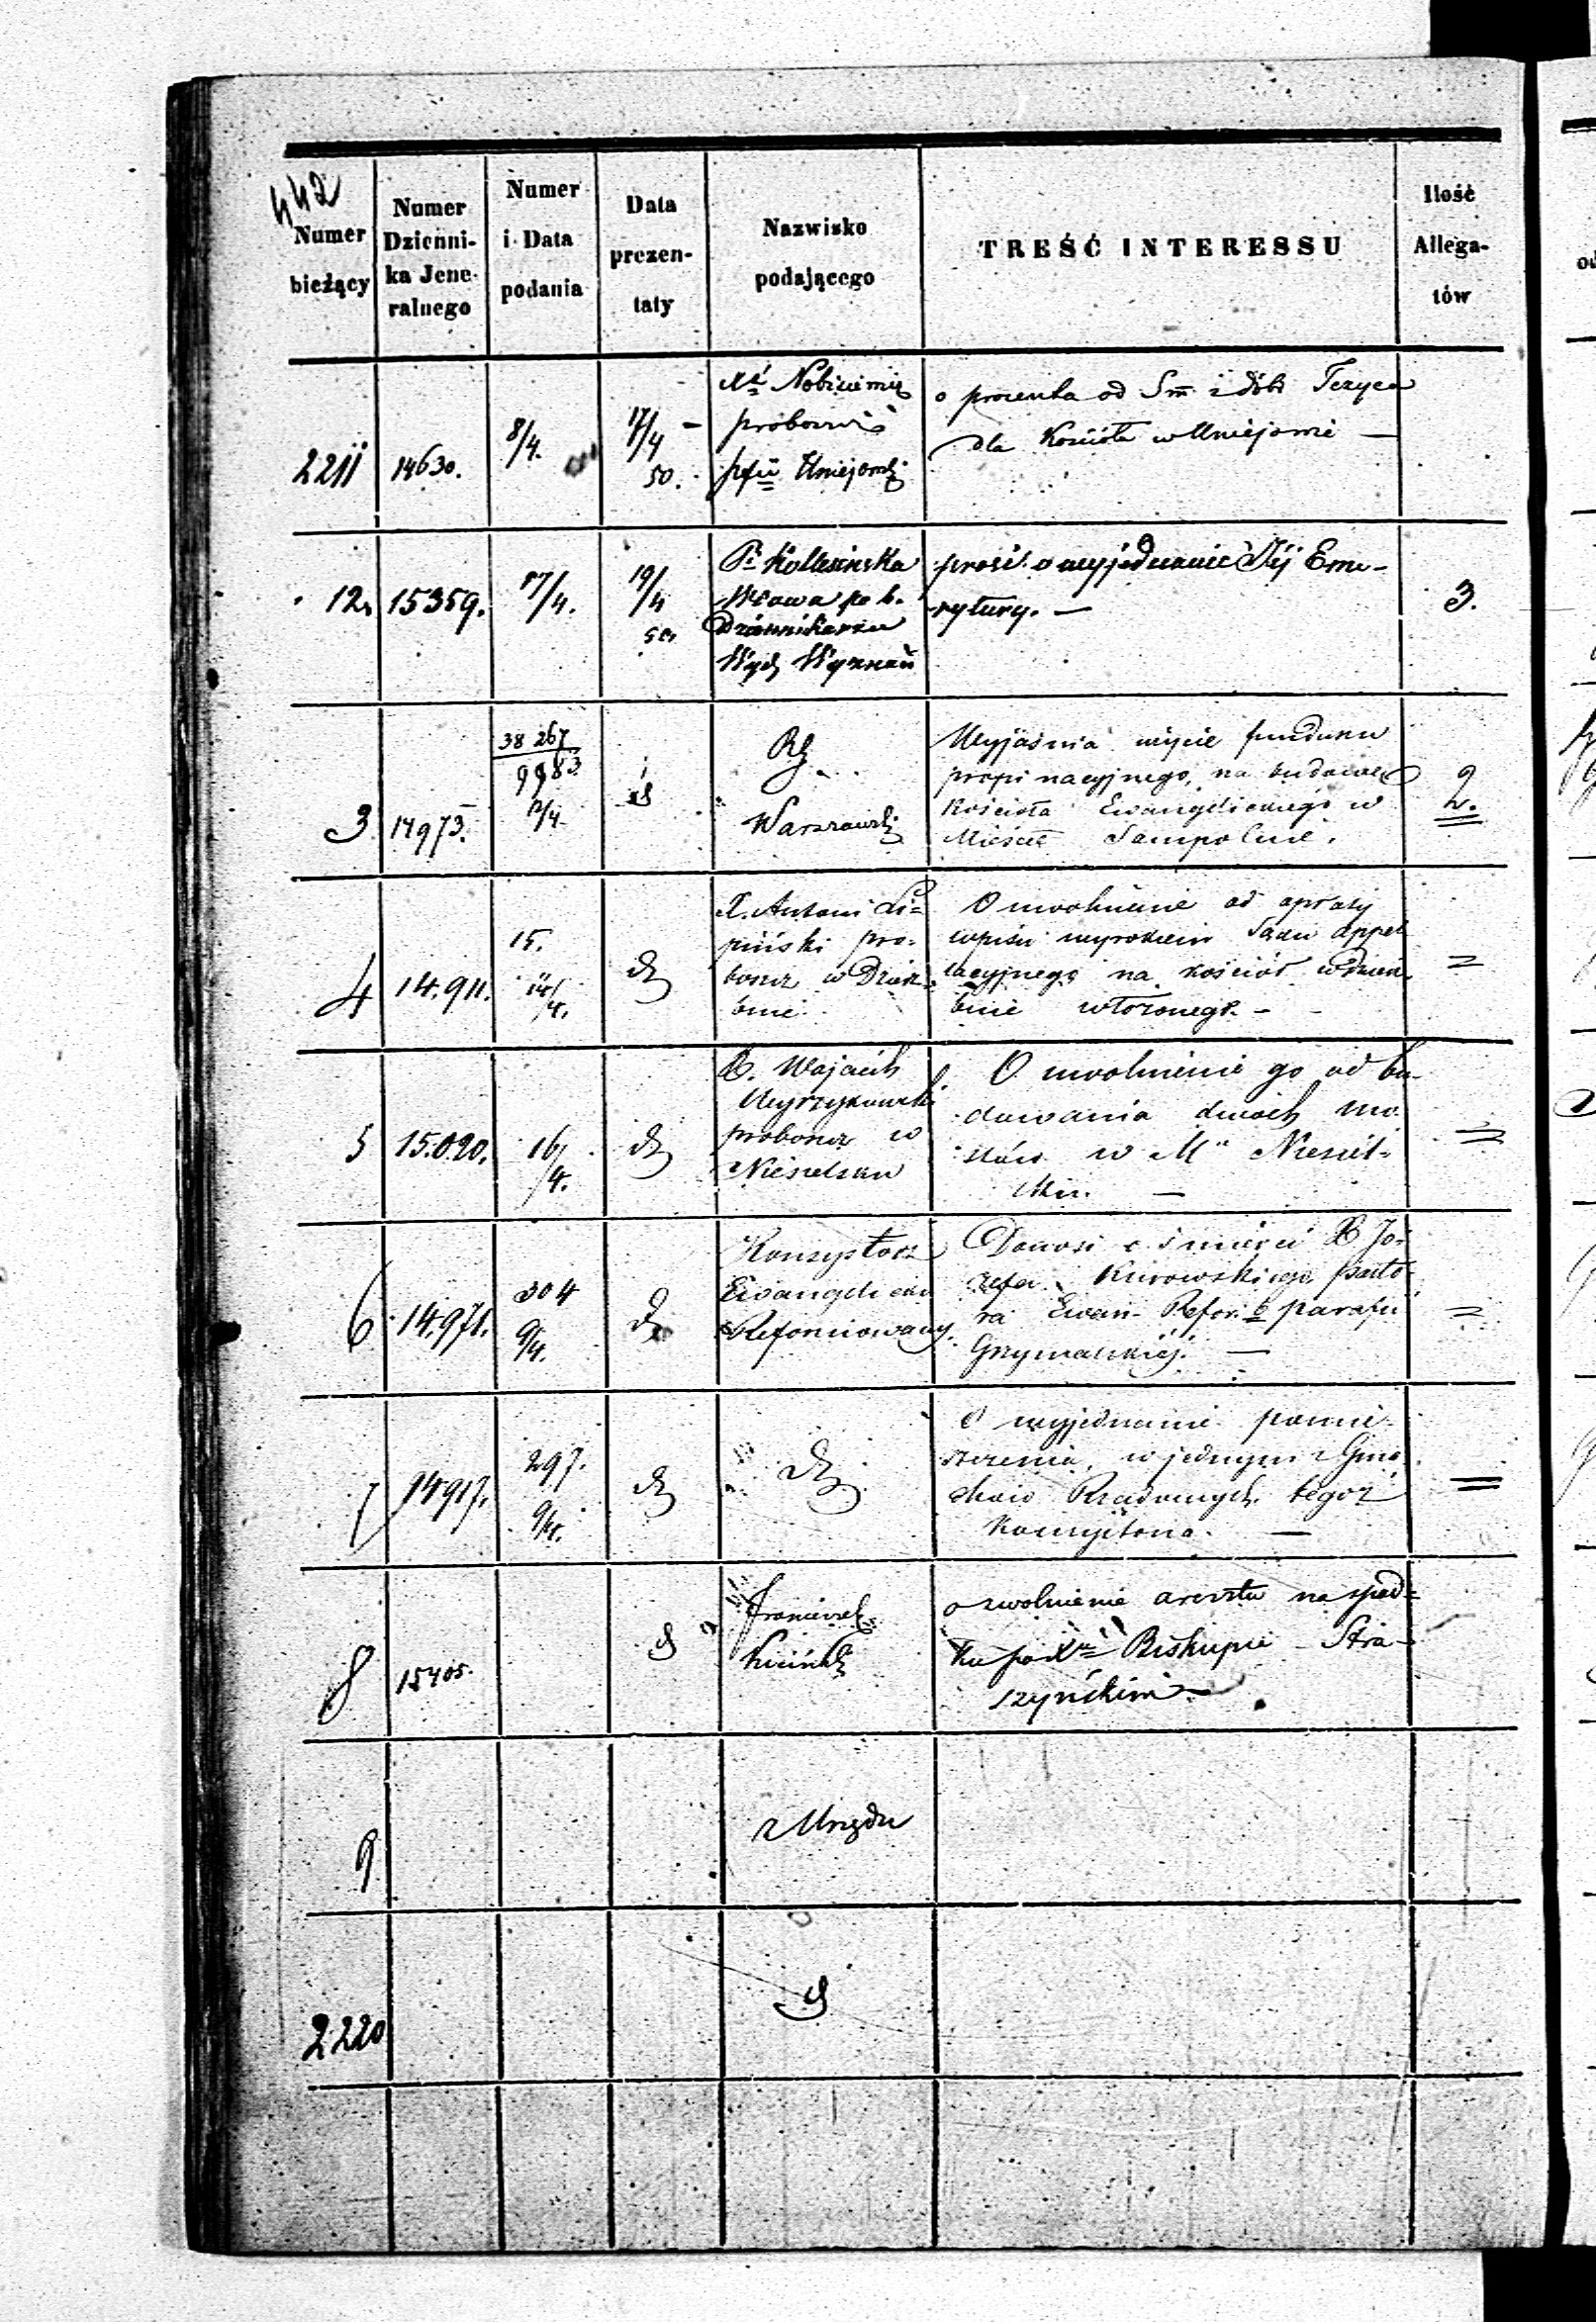 442
Numer
bieżący
Numer
Dzienni-
ka Jene-
ralnego
Numer
i Data
podania
Data
prezen-
taty
Nazwisko
podającego
TREŚĆ INTERESSU
Ilość
Allega-
tów
2211
14630.
8/4.
17/4
50.
proboszcz
o procenta od Sm z dóbr
dla Kościoła w Uniejowie —
12.
15359.
17/4.
19/4
50.
Wdowa po b.
Dziennikarzu
Wydz Wyznań
prosi o wyjednanie Jéj Eme-
rytury. —
3.
3
14973.
38 267
9983
12/4
Rz
Warszawski
Wyjaśnia użycie funduszu
propinacyjnego, na budowę
Kościoła Ewangelickiego w
Mieście Sampolnie.
2.
4
14.911.
15.
14/4.
X. Antoni Li=
piński pro-
boszcz w
binie
O uwolnienie od opłaty
wpisu wyrokiem Sądu Appel
lacyjnego na kościół w
binie włożonego. —
=
5
15.020.
16/4.
X. Wojciech
Wyrzykowski
proboszcz w
Nieszelsku
O uwolnienie go od bu-
dowania dwóch mo
stów w M
=
6
14.971.
304
9/4.
Konsystorz
Ewangelicko
Reformowany.
Donosi o śmierci X Jó-
zefa Kurowskiego pasto-
ra Ewan- Refor. parafii
—
=
7
14917.
297.
9/4.
O wyjednanie pomie-
szczenia, w jednym z Gma
chów Rządowych tegoż
Konsystorza. —
=
8
15405.
Franciszek
Kiciński
o zwolnienie aresztu na spad=
ku po Biskupie Stra-
szyńskim —
9
z Urzędu
2220